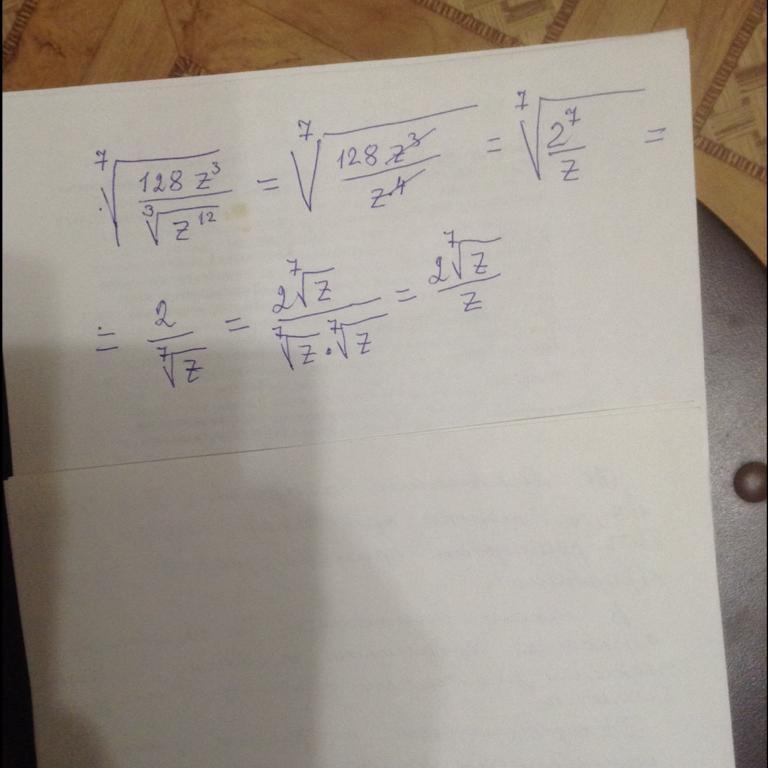 \sqrt[7]{\frac{128 z^3}{\sqrt[3]{z^{12}}}} = \sqrt[7]{\frac{128 z^3}{z^4}} = \sqrt[7]{\frac{2^7}{z}} =
= \frac{2}{\sqrt[7]{z}} = \frac{2\sqrt[7]{z}}{\sqrt[7]{z} \cdot \sqrt[7]{z}} = \frac{2\sqrt[7]{z}}{z}